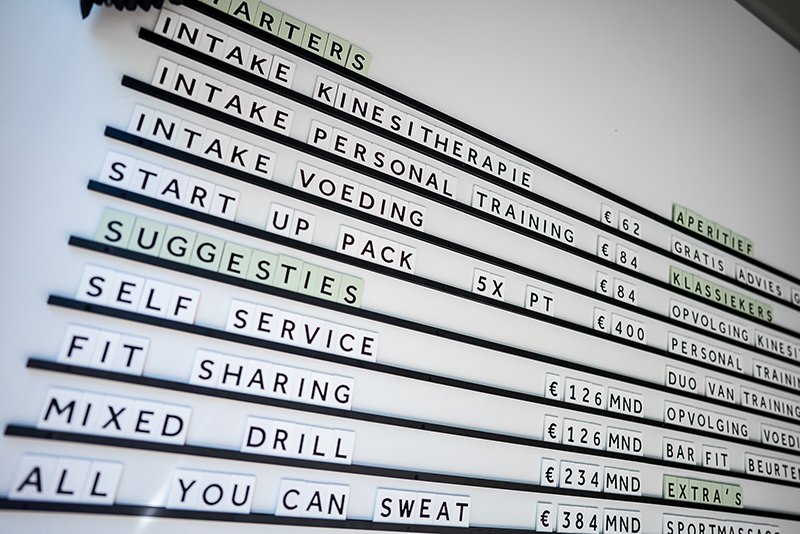 TARTERS
INTAKE KINESITHERAPIE € 62
INTAKE PERSONAL TRAINING € 84
INTAKE VOEDING € 84
START UP PACK 5X PT € 400
SUGGESTIES
SELF SERVICE € 126 MND
FIT SHARING € 126 MND
MIXED DRILL € 234 MND
ALL YOU CAN SWEAT € 384 MND
APERITIEF
GRATIS ADVIES G
KLASSIEKERS
OPVOLGING KINESI
PERSONAL TRAINI
DUO VAN TRAINING
OPVOLGING VOEDI
BAR FIT BEURTEN
EXTRA'S
SPORTMASSAGE